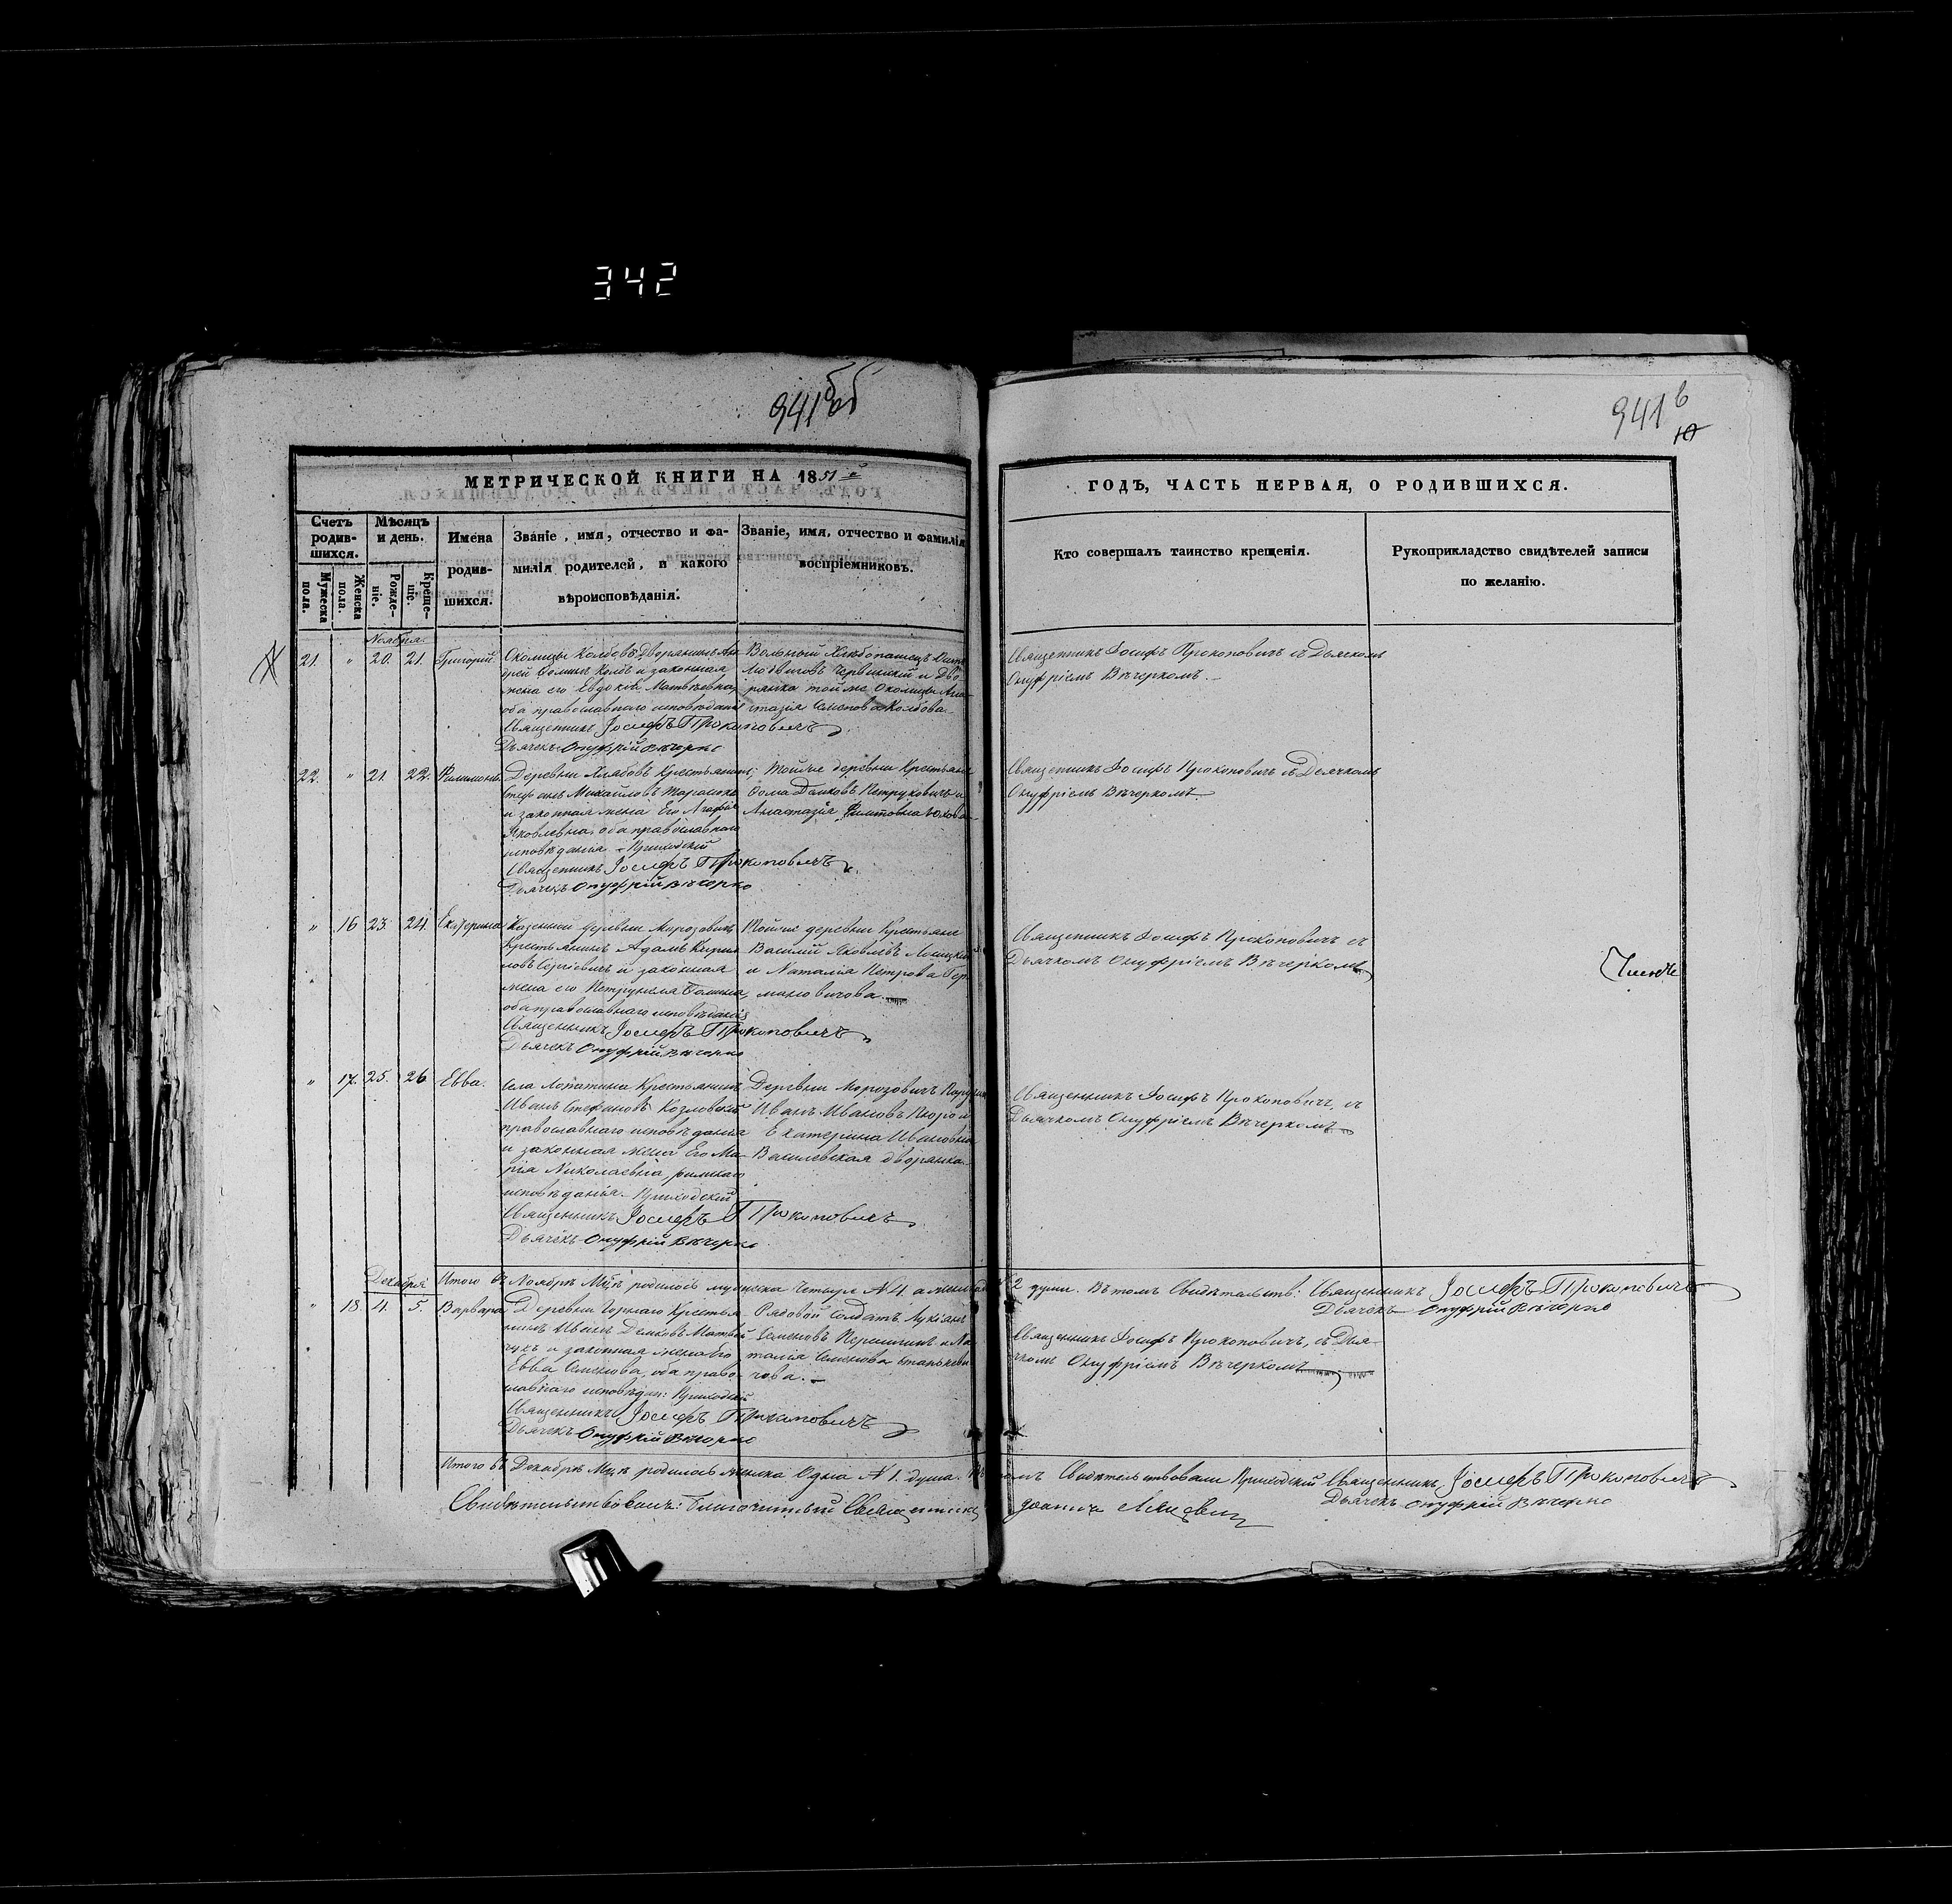 342
941
941 в
10
МЕТРИЧЕСКОЙ КНИГИ НА 1851 й
ГОДЪ, ЧАСТЬ ПЕРВАЯ, О РОДИВШИХСЯ.
Счетъ родив-шихся.
Мужеска пола.
Женска пола.
Мѣсяцъ и день.
Рожде-ніе.
Креще-ніе.
Имена родив-шихся.
Званіе, имя, отчество и фа-
милія родителей, и какого
вѣроисповѣданія.
Званіе, имя, отчество и фамилія
воспріемниковъ.
Кто совершалъ таинство крещенія.
Рукоприкладство свидѣтелей записи
по желанію.
Ноября.
21. " 20. 21. Григорій
Околицы Колбовъ Дворянинъ Ан-
дрей Фоминъ Колбъ и законная
жена его Евдокія Матвѣевна,
оба православнаго исповѣданія
Священникъ Іосифъ Прокоповичъ
Дьячекъ Онуфрій Вѣчорко
Вольный Хлѣбопашецъ
Червинскій и Дво-
рянка той же Околицы Ана-
стазія Семенова Колбова
Священникъ Іосифъ Прокоповичъ съ Дьячкомъ
Онуфріемъ Вѣчеркомъ.
22. " 21. 22. Филимонъ
Деревни Хлябовъ Крестьянинъ
Стефанъ Михайловъ
и законная жена Его Агафія
Яковлевна, оба православнаго
исповѣданія. Приходскій
Священникъ Іосифъ Прокоповичъ
Дьячекъ Онуфрій Вѣчорко
Тойже деревни Крестьяне
Фома Петруковичъ и
Анастазія
Священникъ Іосифъ Прокоповичъ съ Дьячкомъ
Онуфріемъ Вѣчеркомъ.
" 16 23. 24. Екатерина
Казенной деревни Морозовичъ
Крестьянинъ Адамъ Кирил-
ловъ Сергіевичъ и законная
жена его Петрунеля Фомина,
оба православнаго исповѣданія
Священникъ Іосифъ Прокоповичъ
Дьячекъ Онуфрій Вѣчорко
Тойже деревни Крестьяне
Василій Яковлевъ
и Наталія Петрова Гер-
миновичова.
Священникъ Іосифъ Прокоповичъ съ
Дьячкомъ Онуфріемъ Вѣчеркомъ
" 17. 25. 26 Евва.
Села Лопатина Крестьянинъ
Иванъ Стефановъ Козловскій
православнаго исповѣданія
и законная жена Его Ма-
рія Николаевна римскаго
исповѣданія. Приходскій
Священникъ Іосифъ Прокоповичъ
Дьячекъ Онуфрій Вѣчорко
Деревни Морозовичъ
Иванъ Ивановъ и
Екатерина Ивановна
Василевская дворянка.
Священникъ Іосифъ Прокоповичъ, съ
Дьячкомъ Онуфріемъ Вѣчеркомъ
Итого въ Ноябрѣ Мцѣ родилось мужеска Четыре N 4. а женска
2 души. Въ томъ Свидѣтельств: Священникъ Іосифъ Прокоповичъ
Дьячекъ Онуфрій Вѣчорко
Декабря
" 18. 4. 5. Варвара
Деревни Горнаго Крестья-
нинъ Иванъ Демковъ Матвей-
чукъ и законная жена Его
Евва Семенова, оба право-
славнаго исповѣдан: Приходскій
Священникъ Іосифъ Прокоповичъ
Дьячекъ Онуфрій Вѣчорко
Рядовой Солдатъ Лукіанъ
Семеновъ и На-
талія Семенова Станкеви-
чова.
Священникъ Іосифъ Прокоповичъ, съ Дья-
чкомъ Онуфріемъ Вѣчеркомъ
Итого въ Декабрѣ Мцѣ родилась женска Одна N 1. душа.
Свидѣтельствовали Приходскій Священникъ, Іосифъ Прокоповичъ
Дьячекъ Онуфрій Вѣчорко
Свидѣтельствовалъ: Благочинный Священникъ